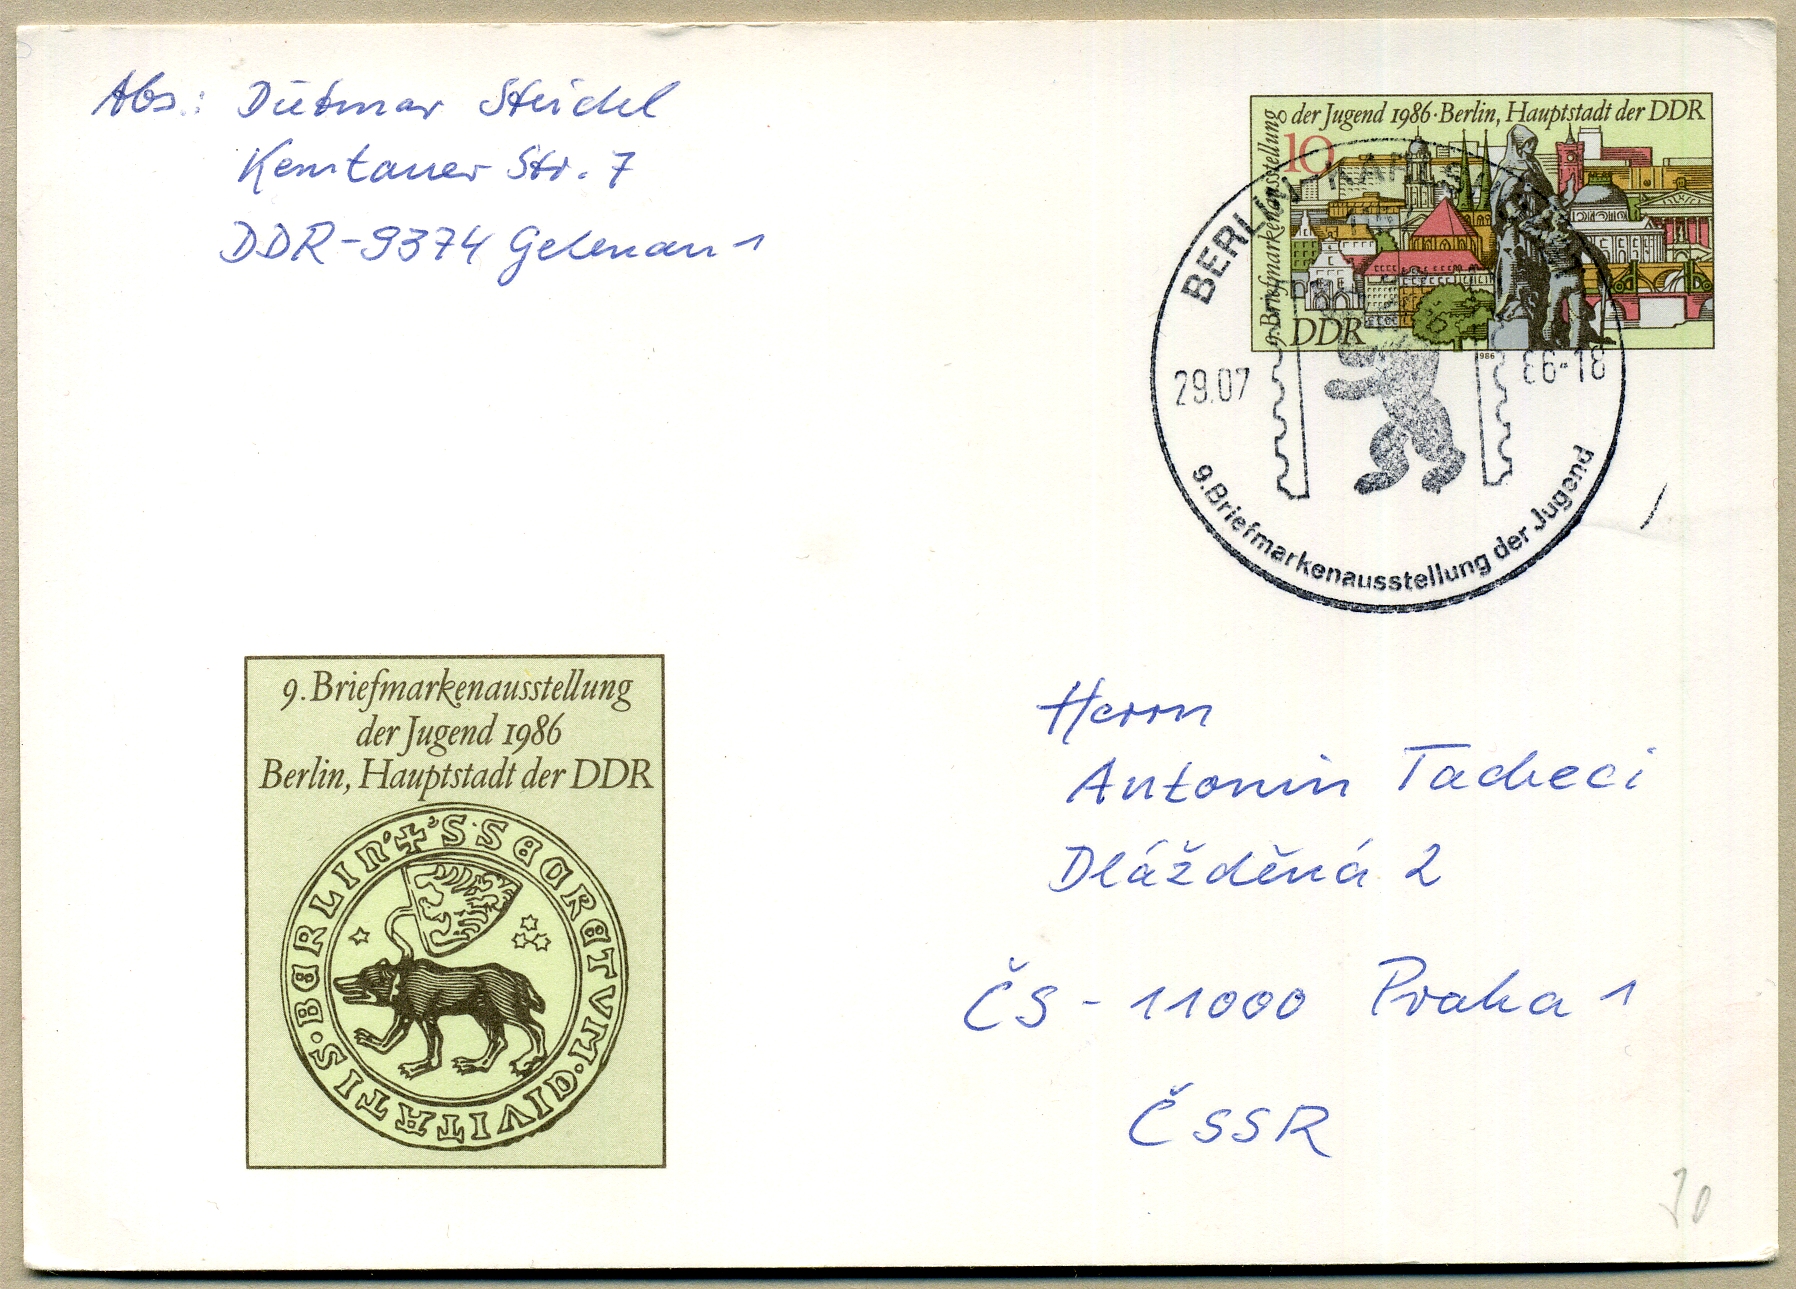 Abs.: Dietmar Steidel
Kemtauer Str. 7
DDR-9374 Gelenau 1
9. Briefmarkenausstellung
der Jugend 1986 · Berlin, Hauptstadt der DDR
10
DDR
1986
BERLIN
29.07
86-18
9. Briefmarkenausstellung der Jugend
9. Briefmarkenausstellung
der Jugend 1986
Berlin, Hauptstadt der DDR
Herrn
Antonin Tacheci
Dlážděná 2
ČS - 11000 Praha 1
ČSSR